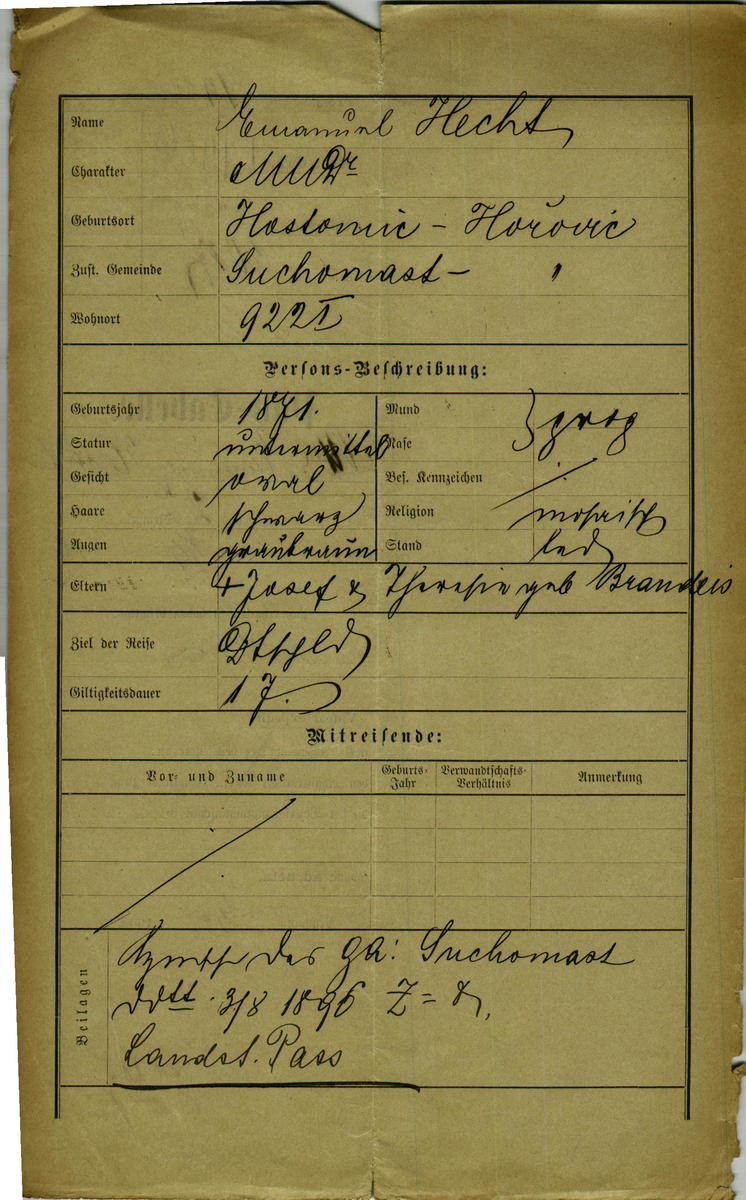 Name Emanuel Hecht
Charakter MUDr
Geburtsort Hostomic - Hořovic
Zust. Gemeinde Suchomast - "
Wohnort 922 I
Persons-Beschreibung:
Geburtsjahr 1871.
Statur untermittel
Gesicht oval
Haare schwarz
Augen graubraun
Mund } prop
Nase
Bes. Kennzeichen /
Religion mosaisch
Stand led
Eltern + Josef & Theresie geb Brandeis
Ziel der Reise Dtschld
Giltigkeitsdauer 1 J.
Mitreisende:
Vor- und Zuname
Geburts-Jahr
Verwandtschafts-Verhältnis
Anmerkung
Beilagen
des GA: Suchomast
ddtt. 3/8 1896 Z =
Landst. Pass